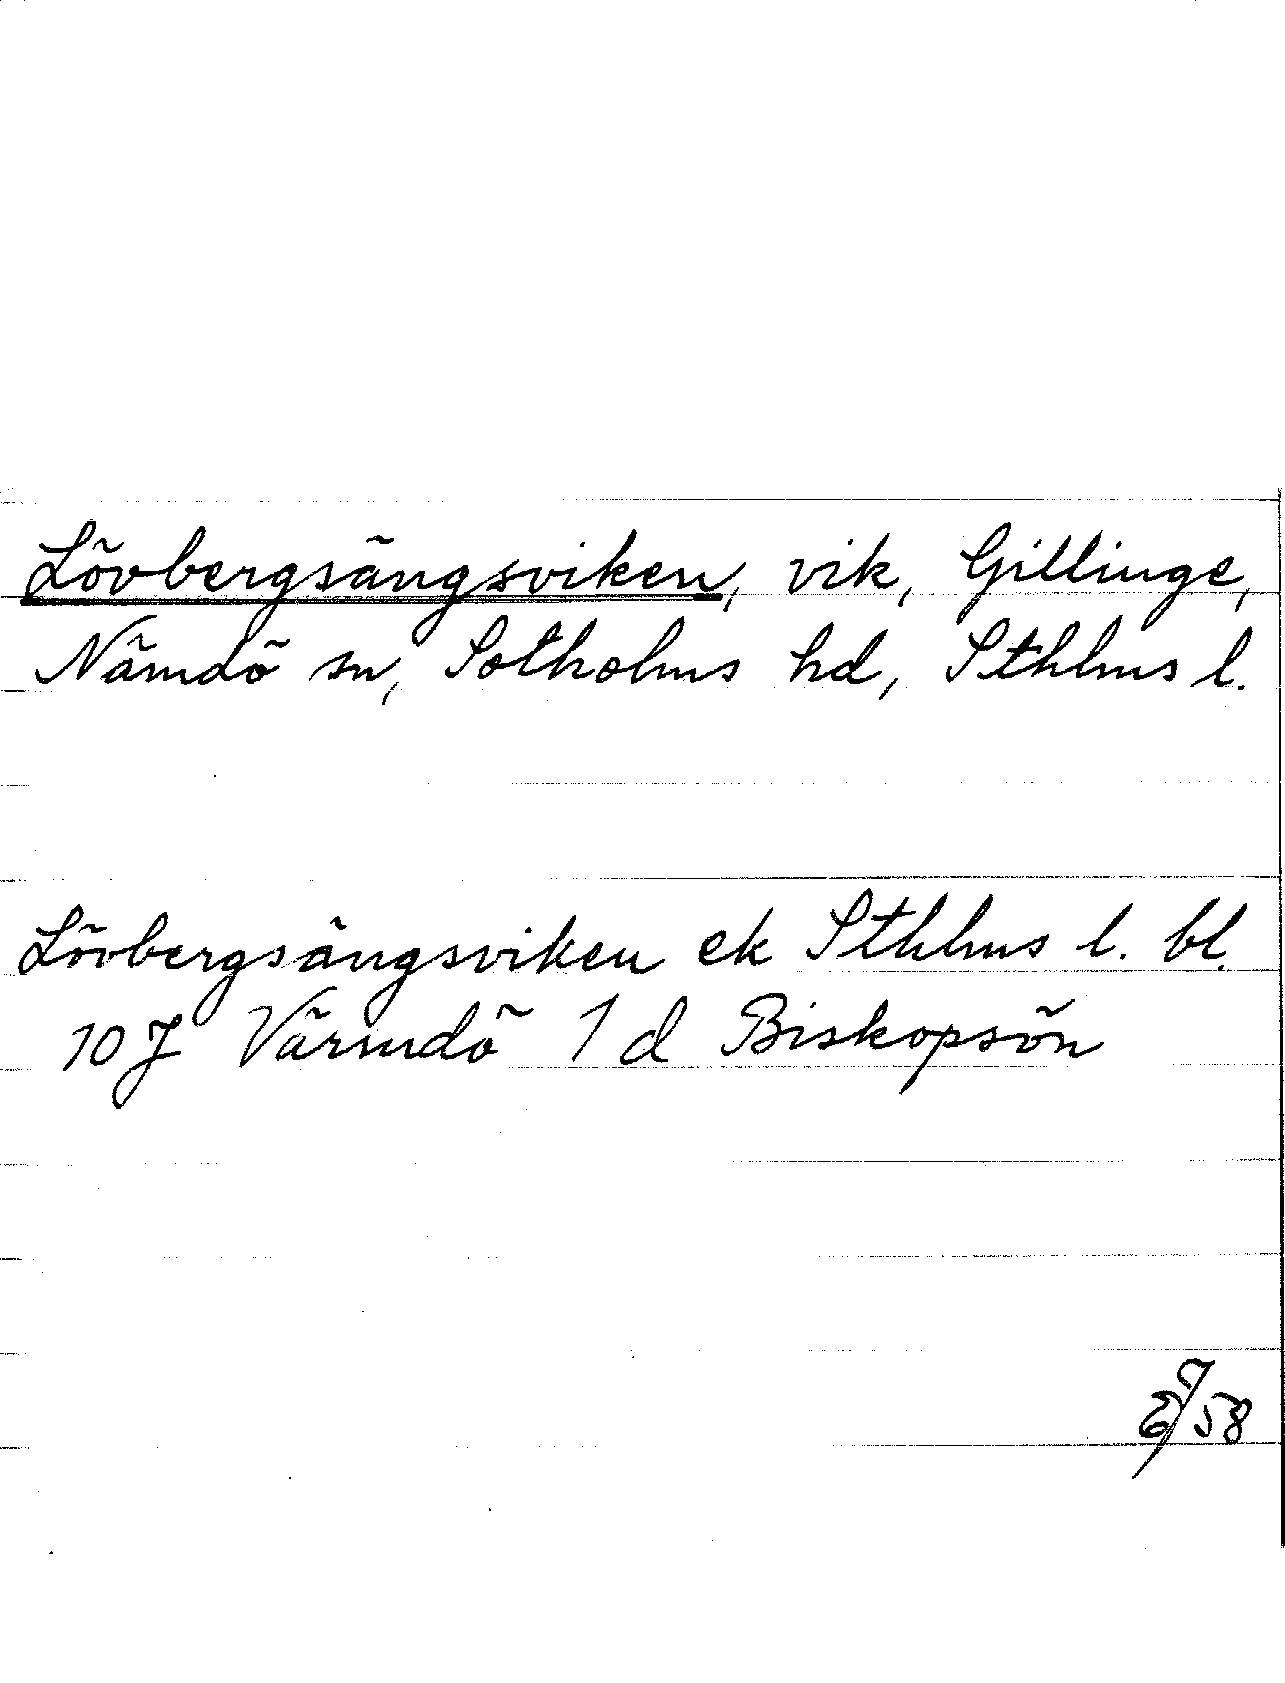 Lövbergsängsviken, vik, Gillinge,
Nämdö sn, Sotholms hd, Sthlms l.
Lövbergsängsviken ek Sthlms l. bl.
10J Värmdö 1 d Biskopsön
58